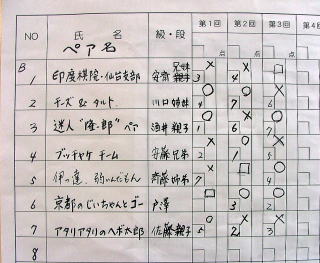 NO 氏名 級・段 第1回 第2回 第3回
ペア名 点 点 点
B
1 印度棋院・仙台支部 安齋 兄妹 3 4
2 チーズ & タルト 川口 姉妹 4 7 6
3 迷人"隆一郎"ペア 酒井 親子 1 6 7
4 ブッチャケ チーム 安藤 兄弟 2 1 5
5 斉藤 姉弟 7 2 4
6 京都のじいちゃんとゴー 戸澤 3 2
7 アタリアタリのヘボ太郎 佐藤 親子 5 2 3
8